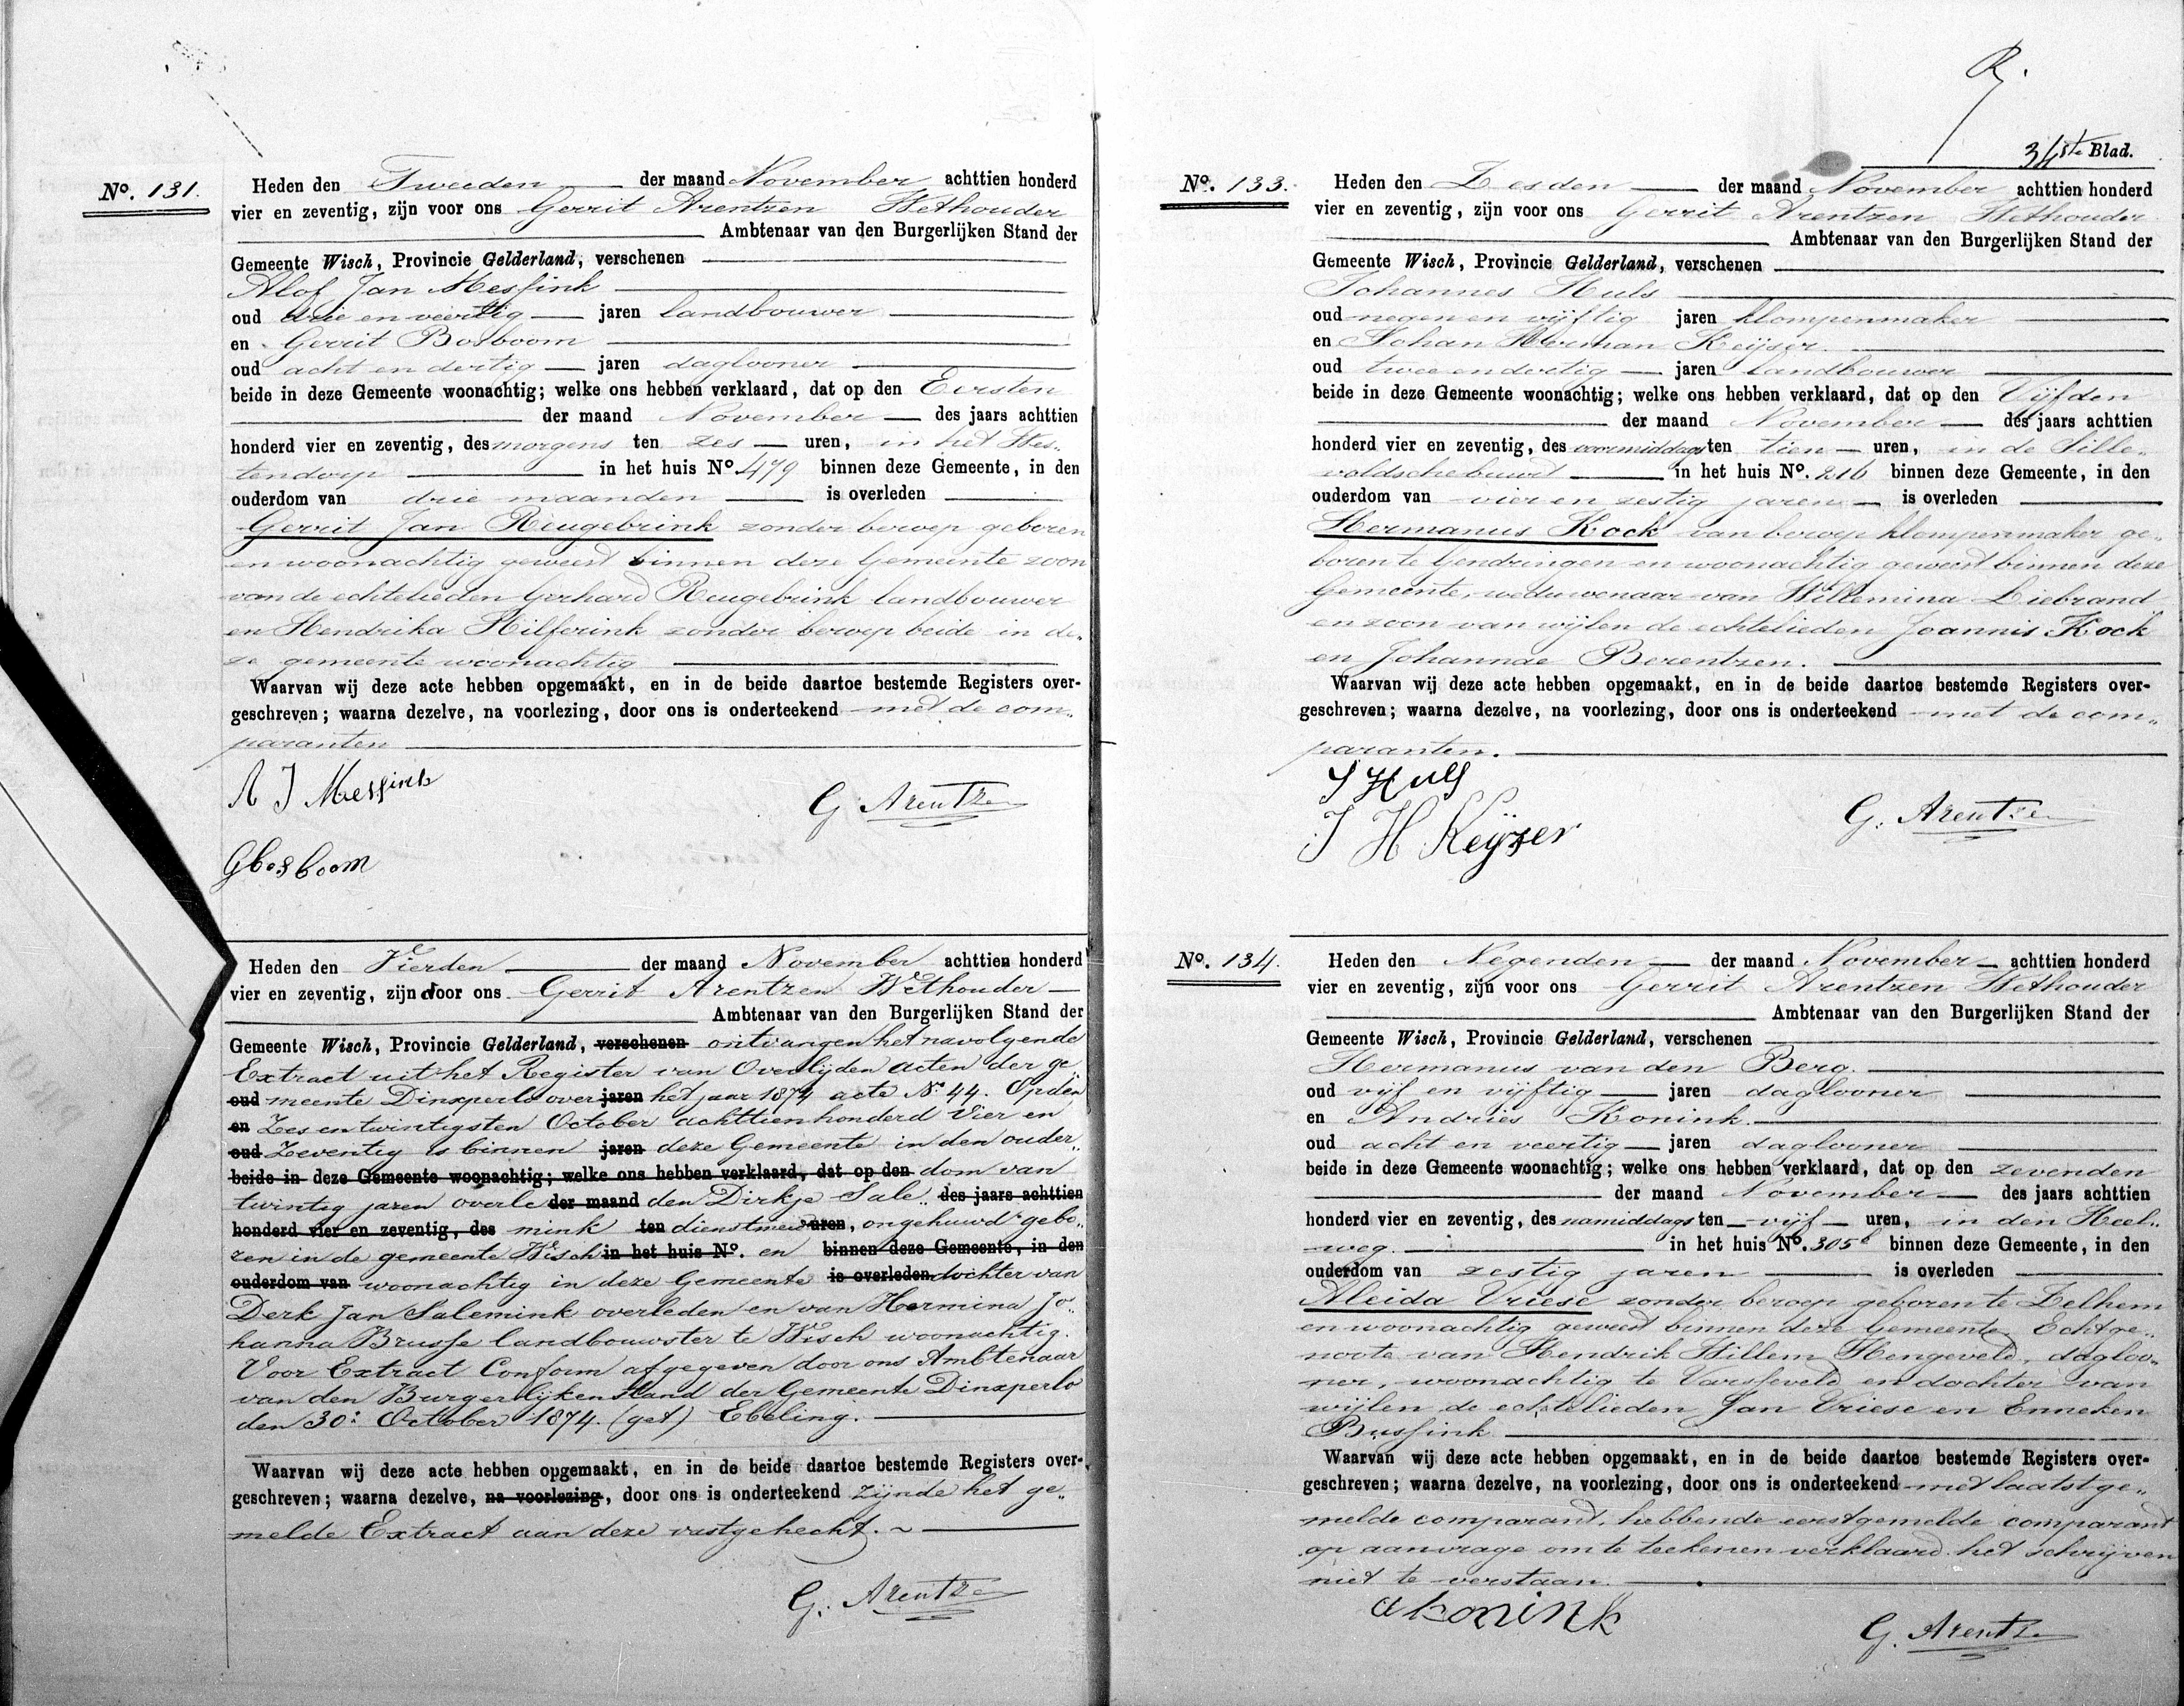 No. 131.
Heden den Tweeden der maand November achttien honderd
vier en zeventig, zijn voor ons Gerrit Arentzen Wethouder
Ambtenaar van den Burgerlijken Stand der
Gemeente Wisch, Provincie Gelderland, verschenen
Alof Jan Messink
oud drie en veertig jaren landbouwer
en Gerrit Bosboom
oud acht en dertig jaren daglooner
beide in deze Gemeente woonachtig; welke ons hebben verklaard, dat op den Eersten
der maand November des jaars achttien
honderd vier en zeventig, des morgens ten zes uren, in het Wes„
tendorp in het huis No. 479 binnen deze Gemeente, in den
ouderdom van drie maanden is overleden
Gerrit Jan Reugebrink zonder beroep geboren
en woonachtig geweest binnen deze Gemeente zoon
van de echtelieden Gerhard Reugebrink landbouwer
en Hendrika Hilferink zonder beroep beide in de„
ze gemeente woonachtig
Waarvan wij deze acte hebben opgemaakt, en in de beide daartoe bestemde Registers over-
geschreven; waarna dezelve, na voorlezing, door ons is onderteekend met de com„
paranten
A J Messink
G. Arentzen
Gbosboom
Heden den Vierden der maand November achttien honderd
vier en zeventig, zijn door ons Gerrit Arentzen Wethouder
Ambtenaar van den Burgerlijken Stand der
Gemeente Wisch, Provincie Gelderland, verschenen ontvangen het navolgende
Extract uit het Register van Overlijden acten der ge„
oud meente Dinxperlo over jaren het jaar 1874 acte No. 44. Op den
en Zes en twintigsten October achttienhonderd Vier en
oud Zeventig is binnen jaren deze Gemeente in den ouder„
beide in deze Gemeente woonachtig; welke ons hebben verklaard, dat op den dom van
twintig jaren overle der maand den Dirkje Sale„ des jaars achttien
honderd vier en zeventig, des mink ten dienstmeid uren, ongehuwd gebo„
ren in de gemeente Wisch in het huis No. en binnen deze Gemeente, in den
ouderdom van woonachtig in deze Gemeente is overleden dochter van
Derk Jan Salemink overleden en van Hermina Jo„
hanna Brusse landbouwster te Wisch woonachtig.
Voor Extract Conform afgegeven door ons Ambtenaar
van den Burgerlijken Stand der Gemeente Dinxperlo
den 30: October 1874. (get) Ebeling.
Waarvan wij deze acte hebben opgemaakt, en in de beide daartoe bestemde Registers over-
geschreven; waarna dezelve, na voorlezing, door ons is onderteekend zijnde het ge„
melde Extract aan deze vastgehecht.
G. Arentzen
34ste Blad.
No. 133.
Heden den Zesden der maand November achttien honderd
vier en zeventig, zijn voor ons Gerrit Arentzen Wethouder
Ambtenaar van den Burgerlijken Stand der
Gemeente Wisch, Provincie Gelderland, verschenen
Johannes Huls
oud negen en vijftig jaren klompenmaker
en Johan Herman Keijser.
oud twee en dertig jaren landbouwer
beide in deze Gemeente woonachtig; welke ons hebben verklaard, dat op den Vijfden
der maand November des jaars achttien
honderd vier en zeventig, des voormiddags ten tien uren, in de Sille„
voldschebuurt in het huis No. 216 binnen deze Gemeente, in den
ouderdom van vier en zestig jaren is overleden
Hermanus Kock van beroep klompenmaker ge„
boren te Gendringen en woonachtig geweest binnen deze
Gemeente, weduwenaar van Willemina Liebrand
en zoon van wijlen de echtelieden Joannis Kock
en Johannae Berentzen.
Waarvan wij deze acte hebben opgemaakt, en in de beide daartoe bestemde Registers over-
geschreven; waarna dezelve, na voorlezing, door ons is onderteekend met de com„
paranten.
J Huls
J H Keijzer
G. Arentzen
No. 134.
Heden den Negenden der maand November achttien honderd
vier en zeventig, zijn voor ons Gerrit Arentzen Wethouder
Ambtenaar van den Burgerlijken Stand der
Gemeente Wisch, Provincie Gelderland, verschenen
Hermanus van den Berg.
oud vijf en vijftig jaren daglooner
en Andries Konink.
oud acht en veertig jaren daglooner
beide in deze Gemeente woonachtig; welke ons hebben verklaard, dat op den zevenden
der maand November des jaars achttien
honderd vier en zeventig, des namiddags ten vijf uren, in den Heel„
weg. in het huis No. 305b binnen deze Gemeente, in den
ouderdom van zestig jaren is overleden
Aleida Vriese zonder beroep geboren te Zelhem
en woonachtig geweest binnen deze Gemeente, Echtge„
noote van Hendrik Willem Hengeveld, dagloo„
ner, woonachtig te Varsseveld en dochter van
wijlen de echtelieden Jan Vriese en Enneken
Bussink
Waarvan wij deze acte hebben opgemaakt, en in de beide daartoe bestemde Registers over-
geschreven; waarna dezelve, na voorlezing, door ons is onderteekend met laatstge„
melde comparant, hebbende eerstgemelde comparant
op aanvrage om te teekenen verklaard het schrijven
niet te verstaan.
a konink
G. Arentzen